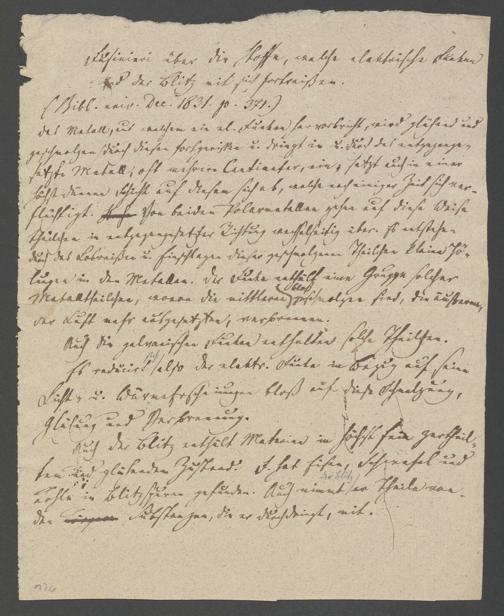 Fusinieri über die Stoffe, welche elektrische Funken
und der Blitz mit sich fortreißen.
(Bibl. univ. Dec. 1831. p. 371.)
Das Metall, aus welchem ein el. Funken hervorbricht, wird glühend und
geschmolzen durch diesen fortgerissen u. dringt in u. durch das entgegenge-
setzte Metall, oft mehrere Centimeter, ein, setzt auch in einer
höchst dünnen Schicht auf diesem sich ab, welche nach einiger Zeit sich ver-
flüchtigt. Von beiden Polarmetallen gehen auf diese Weise
Theilchen in entgegengesetzter Richtung wechselseitig über. Es entstehen
durch das Losreißen u. Einschlagen dieser geschmolzenen Theilchen kleine Hö-
lungen in den Metallen. Der Funke enthält eine Gruppe solcher
Metalltheilchen, wovon die mittleren bloß geschmolzen sind, die äußeren,
der Luft mehr ausgesetzten, verbrennen.
Auch die galvanischen Funken enthalten solche Theilchen.
Es reducirt sich also der elektr. Funke in Bezug auf seine
Licht- u. Wärmeerscheinungen bloß auf diese Schmelzung,
Glühung und Verbrennung.
Auch der Blitz enthält Materien in höchst fein zertheil-
ten und glühenden Zustand. F. hat Eisen, Schwefel und
Kohle in Blitzspuren gefunden. Auch nimmt der Blitz Theile von
den Substanzen, die er durchdringt, mit.